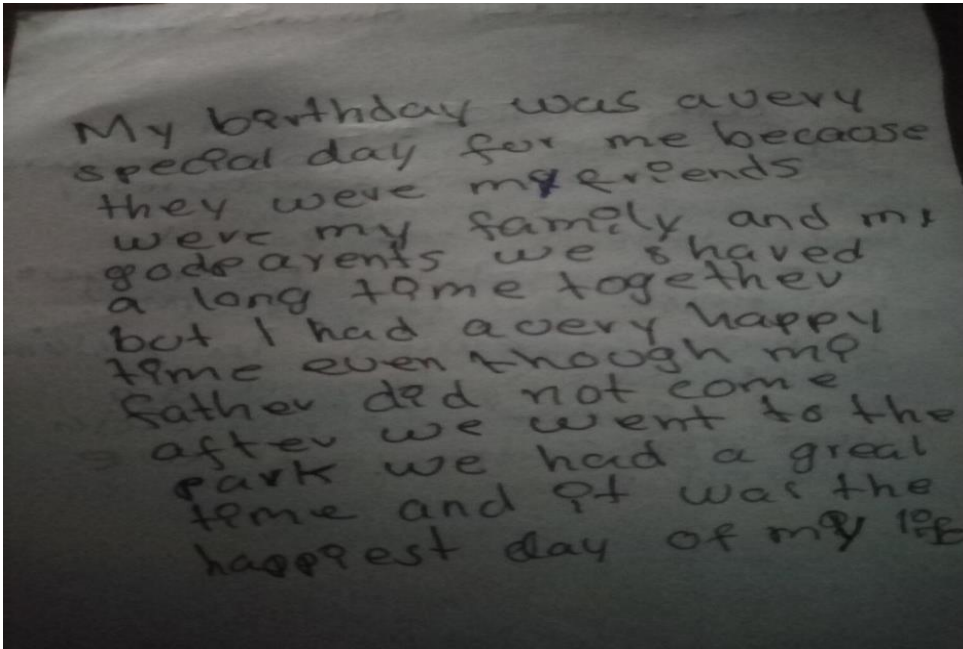 My birthday was avery
special day for me because
they were my friends
were my family and my
godparents we shared
a long time together
but I had avery happy
time even though mi
father did not come
after we went to the
park we had a great
time and it was the
happiest day of my life